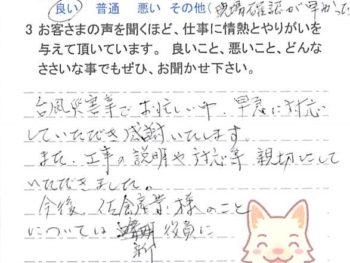 良い 普通 悪い その他(現場確認が早かった
3 お客さまの声を聞くほど、仕事に情熱とやりがいを
与えて頂いています。 良いこと、悪いこと、どんな
ささいな事でもぜひ、お聞かせ下さい。
台風災害等でお忙しい中、早急に対応
していただき感謝いたします。
また、工事の説明や対応等、親切にして
いただきました。
今後、佐倉産業様のこと
については 新役員に